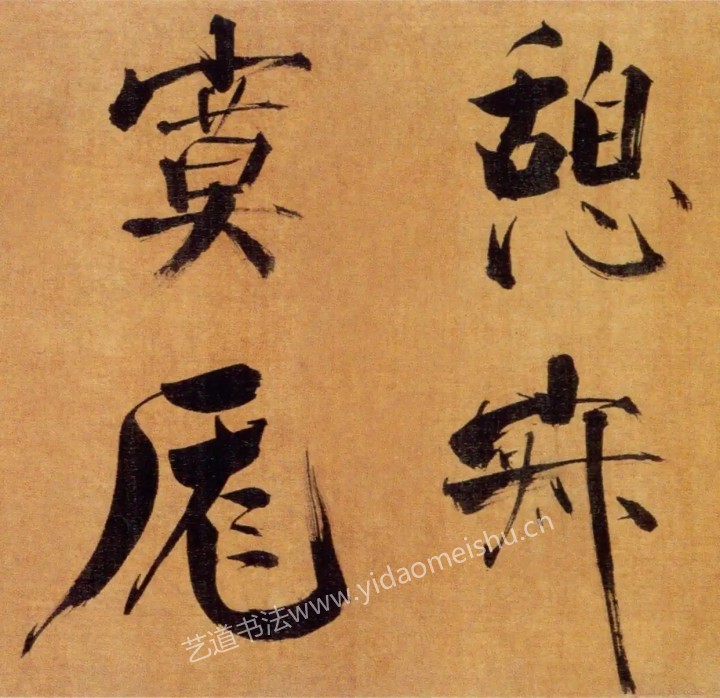 憩寂
寞厖
艺道书法www.yidaomeishu.cn